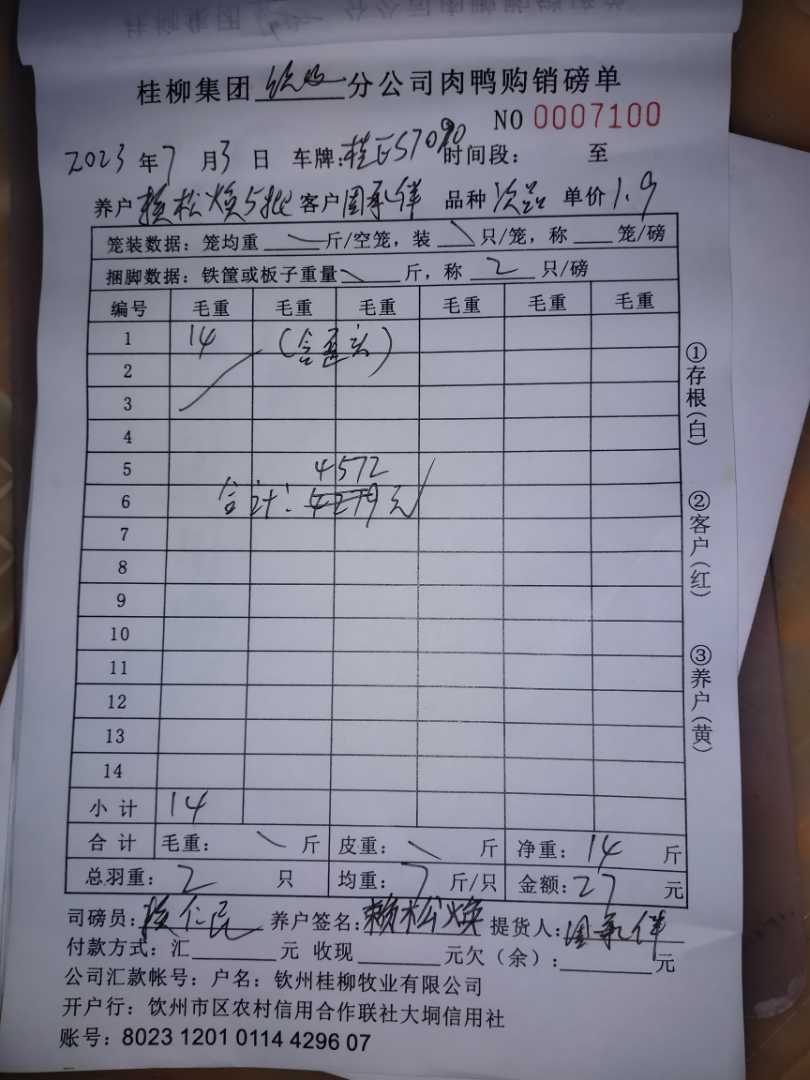 桂柳集团 钦州 分公司肉鸭购销磅单
NO 0007100
2023 年 7 月 3 日 车牌: 时间段: 至
养户 赖松焕5批 客户 周承伴 品种 次品 单价 1.9
笼装数据: 笼均重 \ 斤/空笼, 装 \ 只/笼, 称 笼/磅
捆脚数据: 铁筐或板子重量 \ 斤, 称 2 只/磅
编号 毛重 毛重 毛重 毛重 毛重 毛重
1 14
2
3
4
5 4572
6 合计: 4279元
7
8
9
10
11
12
13
14
小计 14
合计 毛重: \ 斤 皮重: \ 斤 净重: 14 斤
总羽重: 2 只 均重: 7 斤/只 金额: 27 元
司磅员: 仁民 养户签名: 赖松焕 提货人: 周承伴
付款方式: 汇 元 收现 元欠(余): 元
公司汇款帐号: 户名: 钦州桂柳牧业有限公司
开户行: 饮州市区农村信用合作联社大垌信用社
账号: 8023 1201 0114 4296 07
①存根(白)
②客户(红)
③养户(黄)